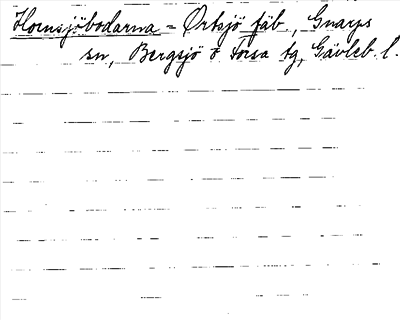 Homsjöbodarna = Örtsjö fäb., Gnarps
sn, Bergsjö o Forsa tg, Gävleb. l.